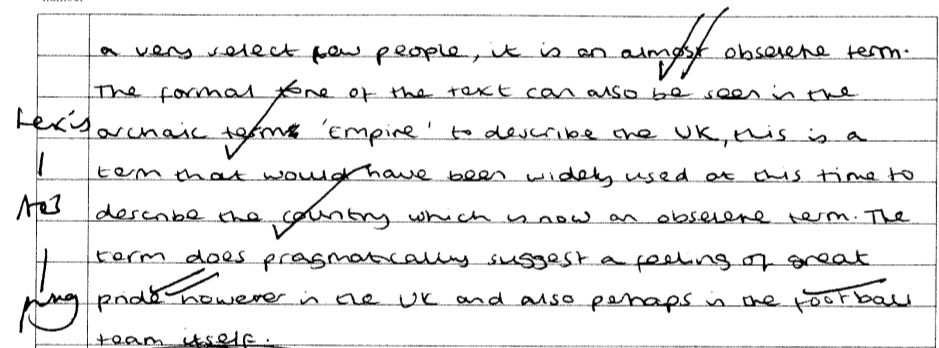 a very select few people, it is an almost obselete term.
The formal tone of the text can also be seen in the
Lexis archaic terms 'Empire' to describe the UK, this is a
term that would have been widely used at this time to
AO3 describe the country which is now an obselete term. The
term does pragmatically suggest a feeling of great
prag pride however in the UK and also perhaps in the football
team itself.